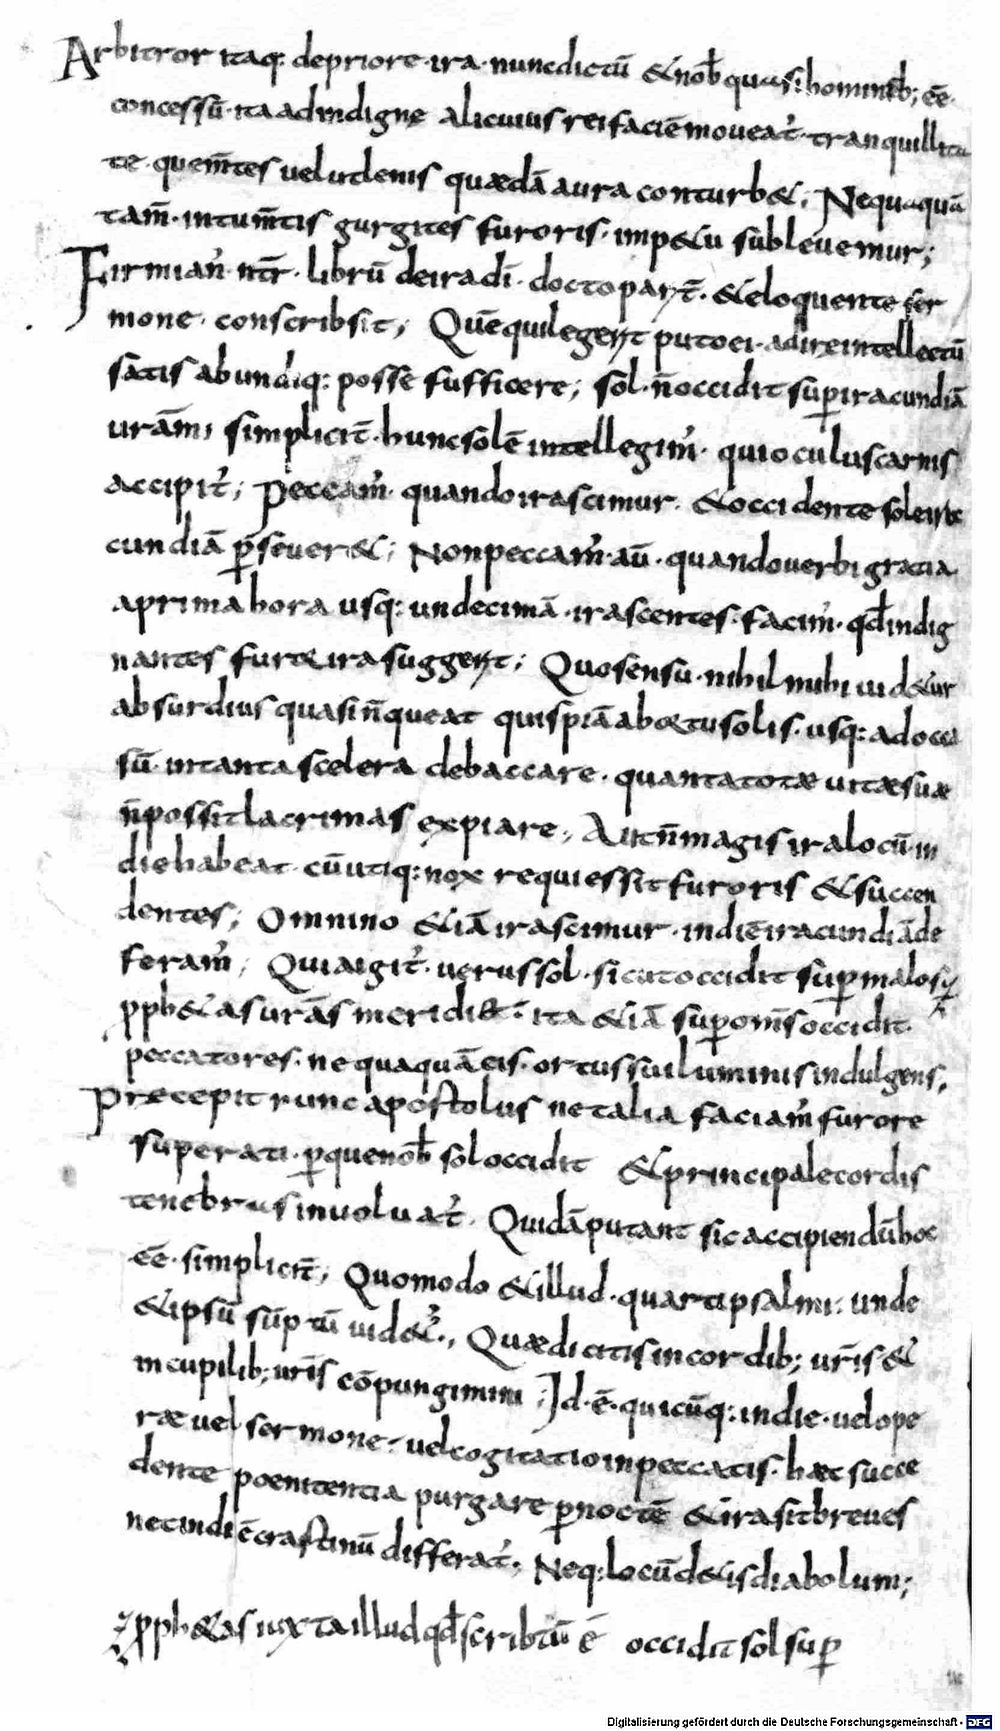 Arbitror itaq: depriore·ira·nuncdictū &nob̄ quasi hominib; eē·
concessū·ita adindignę alicuius rei faciē moveat̄·tranquillita
te·quem̄tes velutlenis quædā aura conturb&; Nequaquā
tam̄·intum̄tis gurgites furoris·imp&u sublevemur;
Firmian̄ nr̄·librū deiradī·doctopar)t̄·&eloquente ser
mone·conscribsit; Quēquilegerit puto ei·adireintellectū
satis abundiq: posse sufficere; sol·n̄occidit sup̄iracundiā
urām; simplicit̄·huncsolē intellegim̄·quioculuscarnis
accipit̄; Peccam̄ quandoirascimur·&occidente soleira
cundiā p̄sever&; Nonpeccam̄·aū·quandoverbigratia
aprimahora usq: undecimā·irascentes·facim̄·qd̄indig
nantes furt&ira suggerit; Quosensu·nihil mihi uid&ur
absurdius quasin̄queat quispiā abortusolis·usq: adocca
sū·intanta scelera debaccare·quantatotæ uitæsuæ
n̄possitlacrimas expiare; Autn̄magis iralocū·in
diehabeat·cūutiq:nox requiessitfuroris &succen
dentes; Omnino &iā irascimur·indiēiracundiāde
feram̄; Quiaigit̄·verussol·sicutoccidit sup̄malos
pph&as urās meridiē: ita &iā sup̄om̄soccidit·
peccatores·nequaquāeis·ortussuiluminisindulgens;
Præcepit nunc apostolus netalia faciam̄furore
superati·p̄quenob̄ sol occidit &principalecordis
tenebrasinvoluat̄. Quidāputant sicaccipiendūhoc
eē·simplicit̄; Quomodo &illud·quartipsalmi: unde
&ipsū sūptū uid&̄; Quædicitisincordib; ur̄is &
incupilib; ur̄is cōpungimini; Id·ē·quicūq: indie·velope
ræ vel·sermone: velcogitatioinpeccatis·hæc succe
dente poenitentia purgare p̄noctē &irasitbreues
necindiēcrastinū differat̄; Neq:locūd&isdiabolum;
pph&as iuxtaillud qd̄scribtū ē occidit sol sup̄
Digitalisierung gefördert durch die Deutsche Forschungsgemeinschaft - DFG